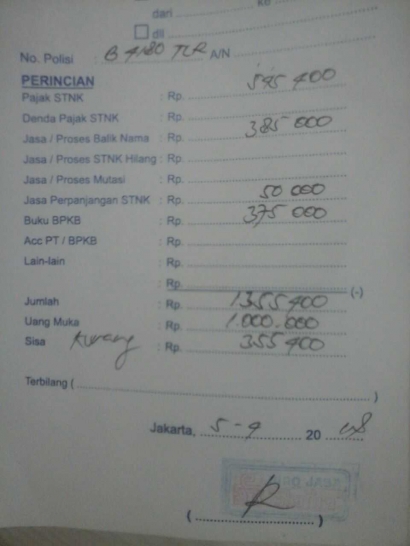 dari ke
dll
No. Polisi : B 4180 TLR A/N
PERINCIAN
Pajak STNK : Rp. 545 400
Denda Pajak STNK : Rp.
Jasa / Proses Balik Nama : Rp. 385 000
Jasa / Proses STNK Hilang : Rp.
Jasa / Proses Mutasi : Rp.
Jasa Perpanjangan STNK : Rp. 50 000
Buku BPKB : Rp. 375 000
Acc PT / BPKB : Rp.
Lain-lain : Rp.
: Rp. (-)
Jumlah : Rp. 1355 400
Uang Muka : Rp. 1.000.000
Sisa Kurang : Rp. 355 400
Terbilang ( )
Jakarta, 5-4 20
( )